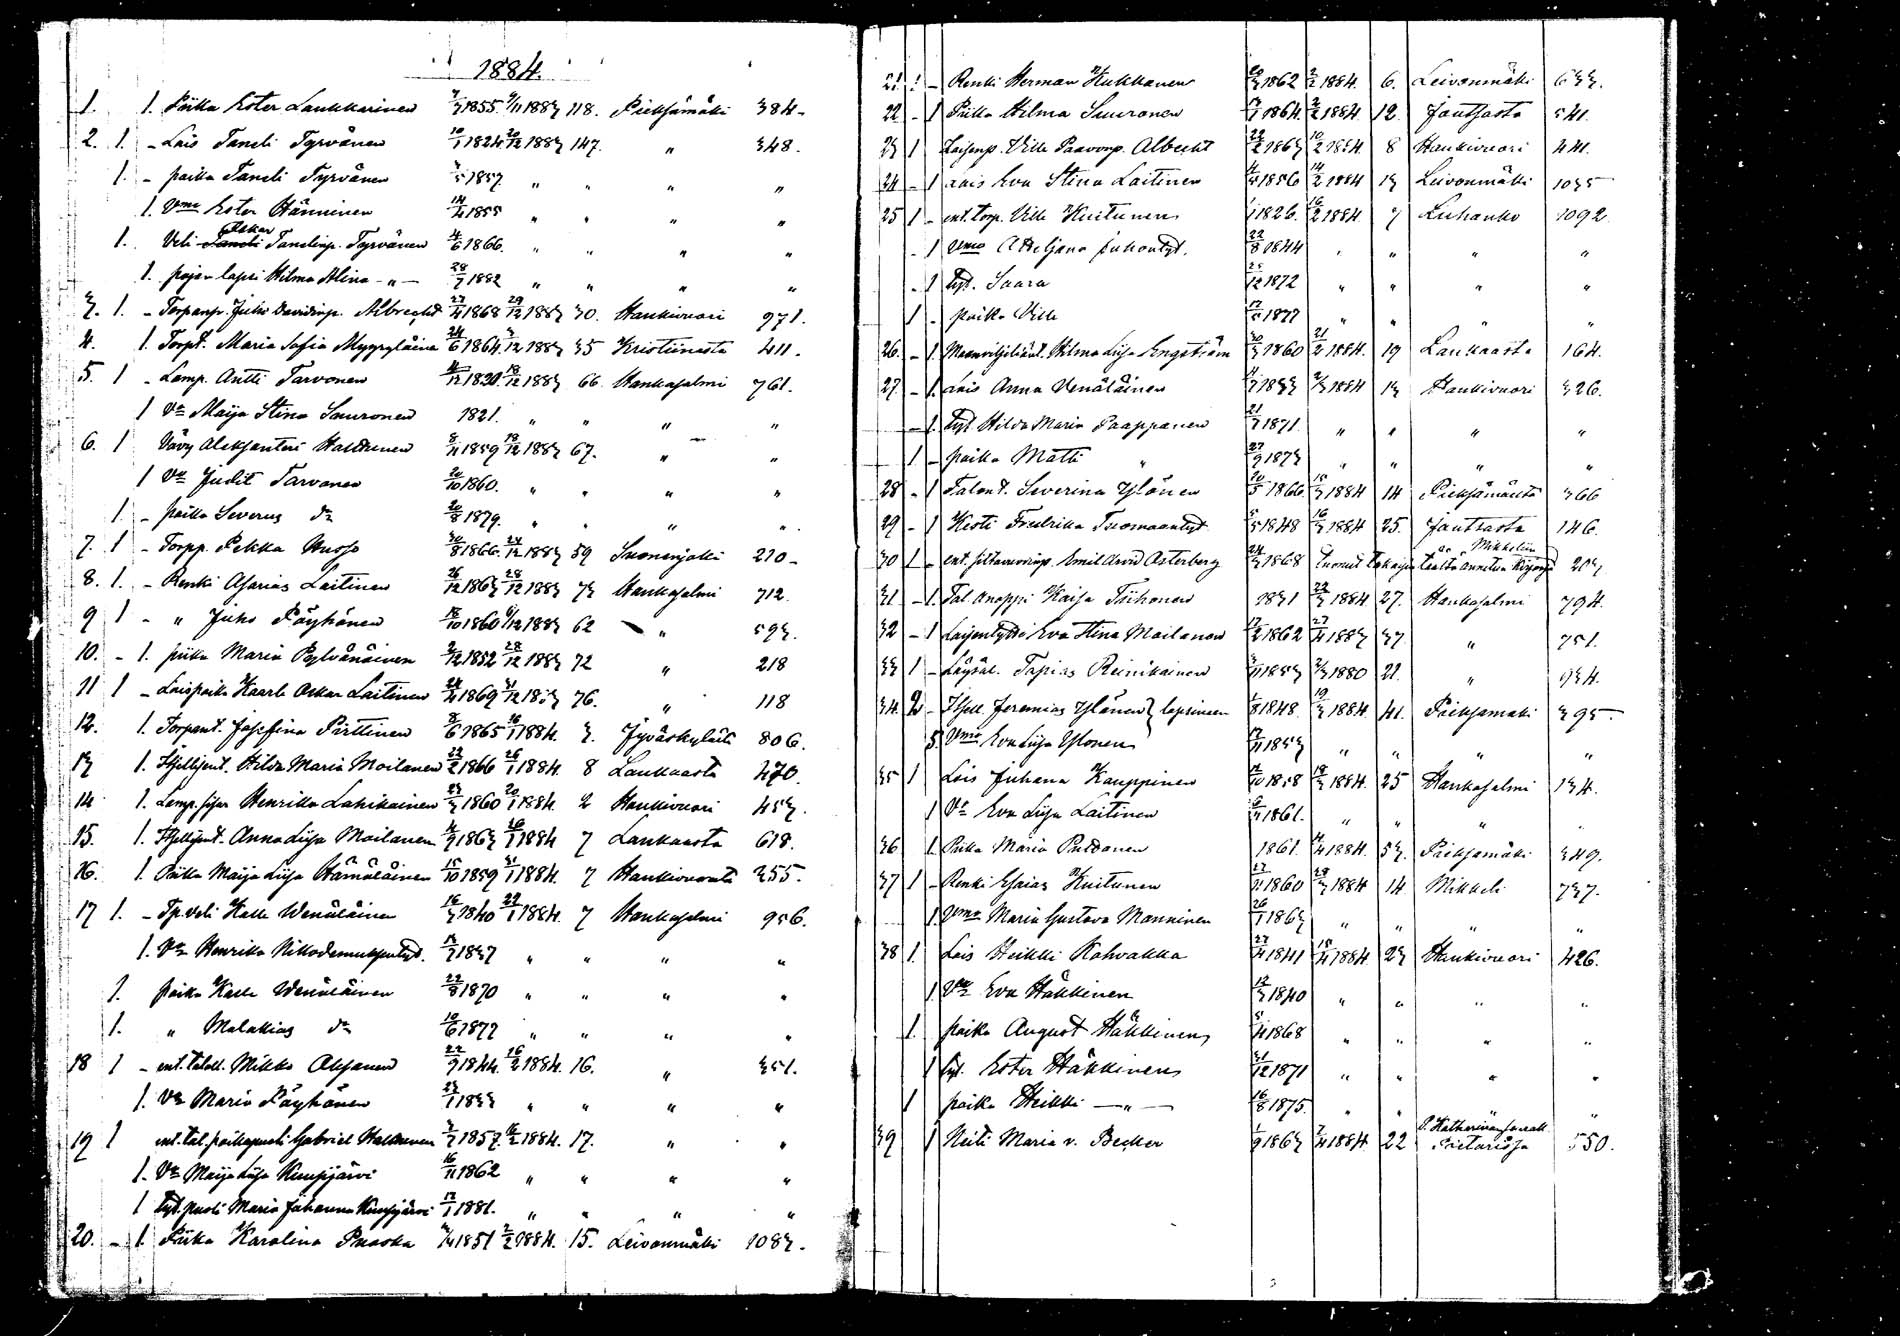 1884.
1. 1. Piika Ester Laukkarinen 7/7 1855 9/11 1883 118. Pieksämäki 384
2. 1. - Lois Taneli Tyrvänen 10/1 1824 20/12 1883 147. " 348.
1. - poika Taneli Tyrvänen 3/5 1857 " " " "
1. Vmo Ester Hänninen 14/4 1855 " " " "
1. Veli Oskar Tanelinp. Tyrvänen 4/6 1866. " " " "
1. pojan lapsi Hilma Alina - " - 28/7 1882 " " " "
3. 1. - Torpanp. Juho Davidinp. Albrecht 23/4 1868 29/12 1883 30. Haukivuori 971.
4. 1. Torpt. Maria Sofia Myyryläinen 24/6 1864 3/12 1883 35 Kristiinasta 411.
5. 1 - Lamp. Antti Tarvonen 1820. 18/12 1883 66. Hankasalmi 761.
1 Vo Maija Stina Sauronen 1821. " " " "
6. 1 Vävy Aleksanteri Halttunen 8/11 1859 18/12 1883 67. " "
1 Vo Judit Tarvonen 20/10 1860. " " " "
1. - poika Severus do 20/8 1879. " " " "
7. 1 - Torpp. Pekka Husso 30/8 1866. 24/12 1883 59 Suonenjoki 210
8. 1. - Renki Asarias Laitinen 26/12 1863 28/12 1883 73 Hankasalmi 712.
9 1 - " Juho Pöyhönen 18/10 1860 1883 62 " 593.
10. - 1. piika Maria Pylvänäinen 2/12 1852 28/12 1883 72 " 218
11 1 - Loispoika Kaarle Oskar Laitinen 24/4 1869 31/12 1883 76. " 118
12. 1. Torpant. Josefina Pirttinen 8/6 1865 16/1 1884. 3. Jyväskylästä 806.
13 1. Itsellisent. Hilda Maria Moilanen 22/2 1866 26/1 1884. 8 Laukaasta 470.
14 1. Lamp. Henrikka Lahikainen 23/3 1860 20/1 1884. 2 Haukivuori 453.
15. 1. Itsellisent. Anna Liisa Moilanen 4/9 1863 26/1 1884 7 Laukaasta 618.
16. 1. Piika Maija Liisa Hämäläinen 15/10 1859 31/1 1884. 7 Haukivuorelta 255.
17 1. - Tp. veli Kalle Wenäläinen 16/3 1840 29/1 1884. 7 Hankasalmi 956.
1. Vo Henrika Nikodemuksentyt. 18/7 1837 " " " "
1. poika Kalle Wenäläinen 22/8 1870 " " " "
1. " Malakias do 10/6 1877 " " " "
18 1 - ent. taloll. Mikko Oksanen 22/9 1844. 16/2 1884. 16. " 351.
1. Vo Maria Pöyhönen 23/1 1833 " " " "
19 1 ent. tal. poikapuoli Gabriel Halttunen 3/7 1857. 16/2 1884. 17. " "
1. Vo Maija Liisa Kumpjärvi 16/11 1862 " " " "
1 tyt. puoli Maria Johanna Kumpjärvi 12/1 1881. " " " "
20. - 1. Piika Karolina Puaska 1851 2/2 1884. 15. Leivonmäki 1083.
21. 1 - Renki Herman Kukkanen 20/3 1862 2/2 1884. 6. Leivonmäki 633.
22 - 1 Piika Hilma Suuronen 13/7 1864. 2/2 1884. 12. Joutsasta 541.
23 1 Loisenp. Ville Paavonp. Albrecht 22/2 1863 10/2 1884. 8 Haukivuori 441.
24 - 1 Lois Eva Stina Laitinen 4/4 1856 14/2 1884 13 Leivonmäki 1035
25 1 - ent. torp. Ville Kuitunen 1/1 1826. 16/2 1884. 7 Luhanko 1092.
- 1 Vmo Atteljana Juhontyt. 22/8 1844 " " " "
- 1 tyt. Saara 25/12 1872 " " " "
1 - poika Ville 1877 " " " "
26. - 1. Maanviljeliänt. Hilma Liisa Engström 30/3 1860 21/2 1884. 19 Laukaasta 164.
27. - 1. Lois Anna Venäläinen 1833 2/3 1884 13 Haukivuori 326.
- 1. tyt Hilda Maria Paappanen 21/7 1871. " " " "
1 - poika Matti " 27/9 1873 " " " "
28 - 1 Talont. Severina Ylönen 20/5 1866. 15/3 1884 14 Pieksämäeltä 366
29 - 1 Kesti Fredrika Tuomaantyt 5/5 1848 16/3 1884 25. Joutsasta 146.
30 1 - ent. siltavoudinp. Emil Arvid Asterberg 24/3 1868 Tuonut takaisin täältä annetun Mikkeliin kirjansa 203
31 - 1. Tal. anoppi Kaisa Tiihonen 1831 22/3 1884 27. Hankasalmi 794.
32 - 1 Loisentyttö Eva Stina Moilanen 17/2 1862 27/4 1883 37 " 751.
33 1 - Löysäl. Tapias Reinikainen 1853 2/3 1880 21. " 934.
34. 2 - Itsell. Jeremias Ylänen } lapsineen 1/8 1848 19/3 1884. 41. Pieksämäki 395.
5. Vmo Eva Liisa Ylönen 17/11 1853 " " " "
35 1 Lois Juhana Kauppinen 12/10 1858 18/3 1884. 25 Hankasalmi 134.
1 Vo Eva Liisa Laitinen 1861. " " " "
36 1. Piika Maria Puttonen 1861. 4/4 1884. 53. Pieksämäki 349.
37 1 - Renki Esaias Kuitunen 27/11 1860 28/3 1884 14. Mikkeli 737.
1. Vmo Maria Gustava Manninen 26/1 1863 " " " "
38 1. Lois Heikki Kahvakka 27/4 1841 15/4 1884. 23 Haukivuori 426.
1. Vmo Eva Häkkinen 12/3 1840 " " " "
1. poika August Häkkinen 5/4 1868 " " " "
1 tyt. Ester Häkkinen 31/12 1871 " " " "
1 poika Heikki - " - 16/8 1875. " " " "
39 1 Neiti Maria v. Becker 1/9 1863 7/4 1884 22 Pietarissa 550.